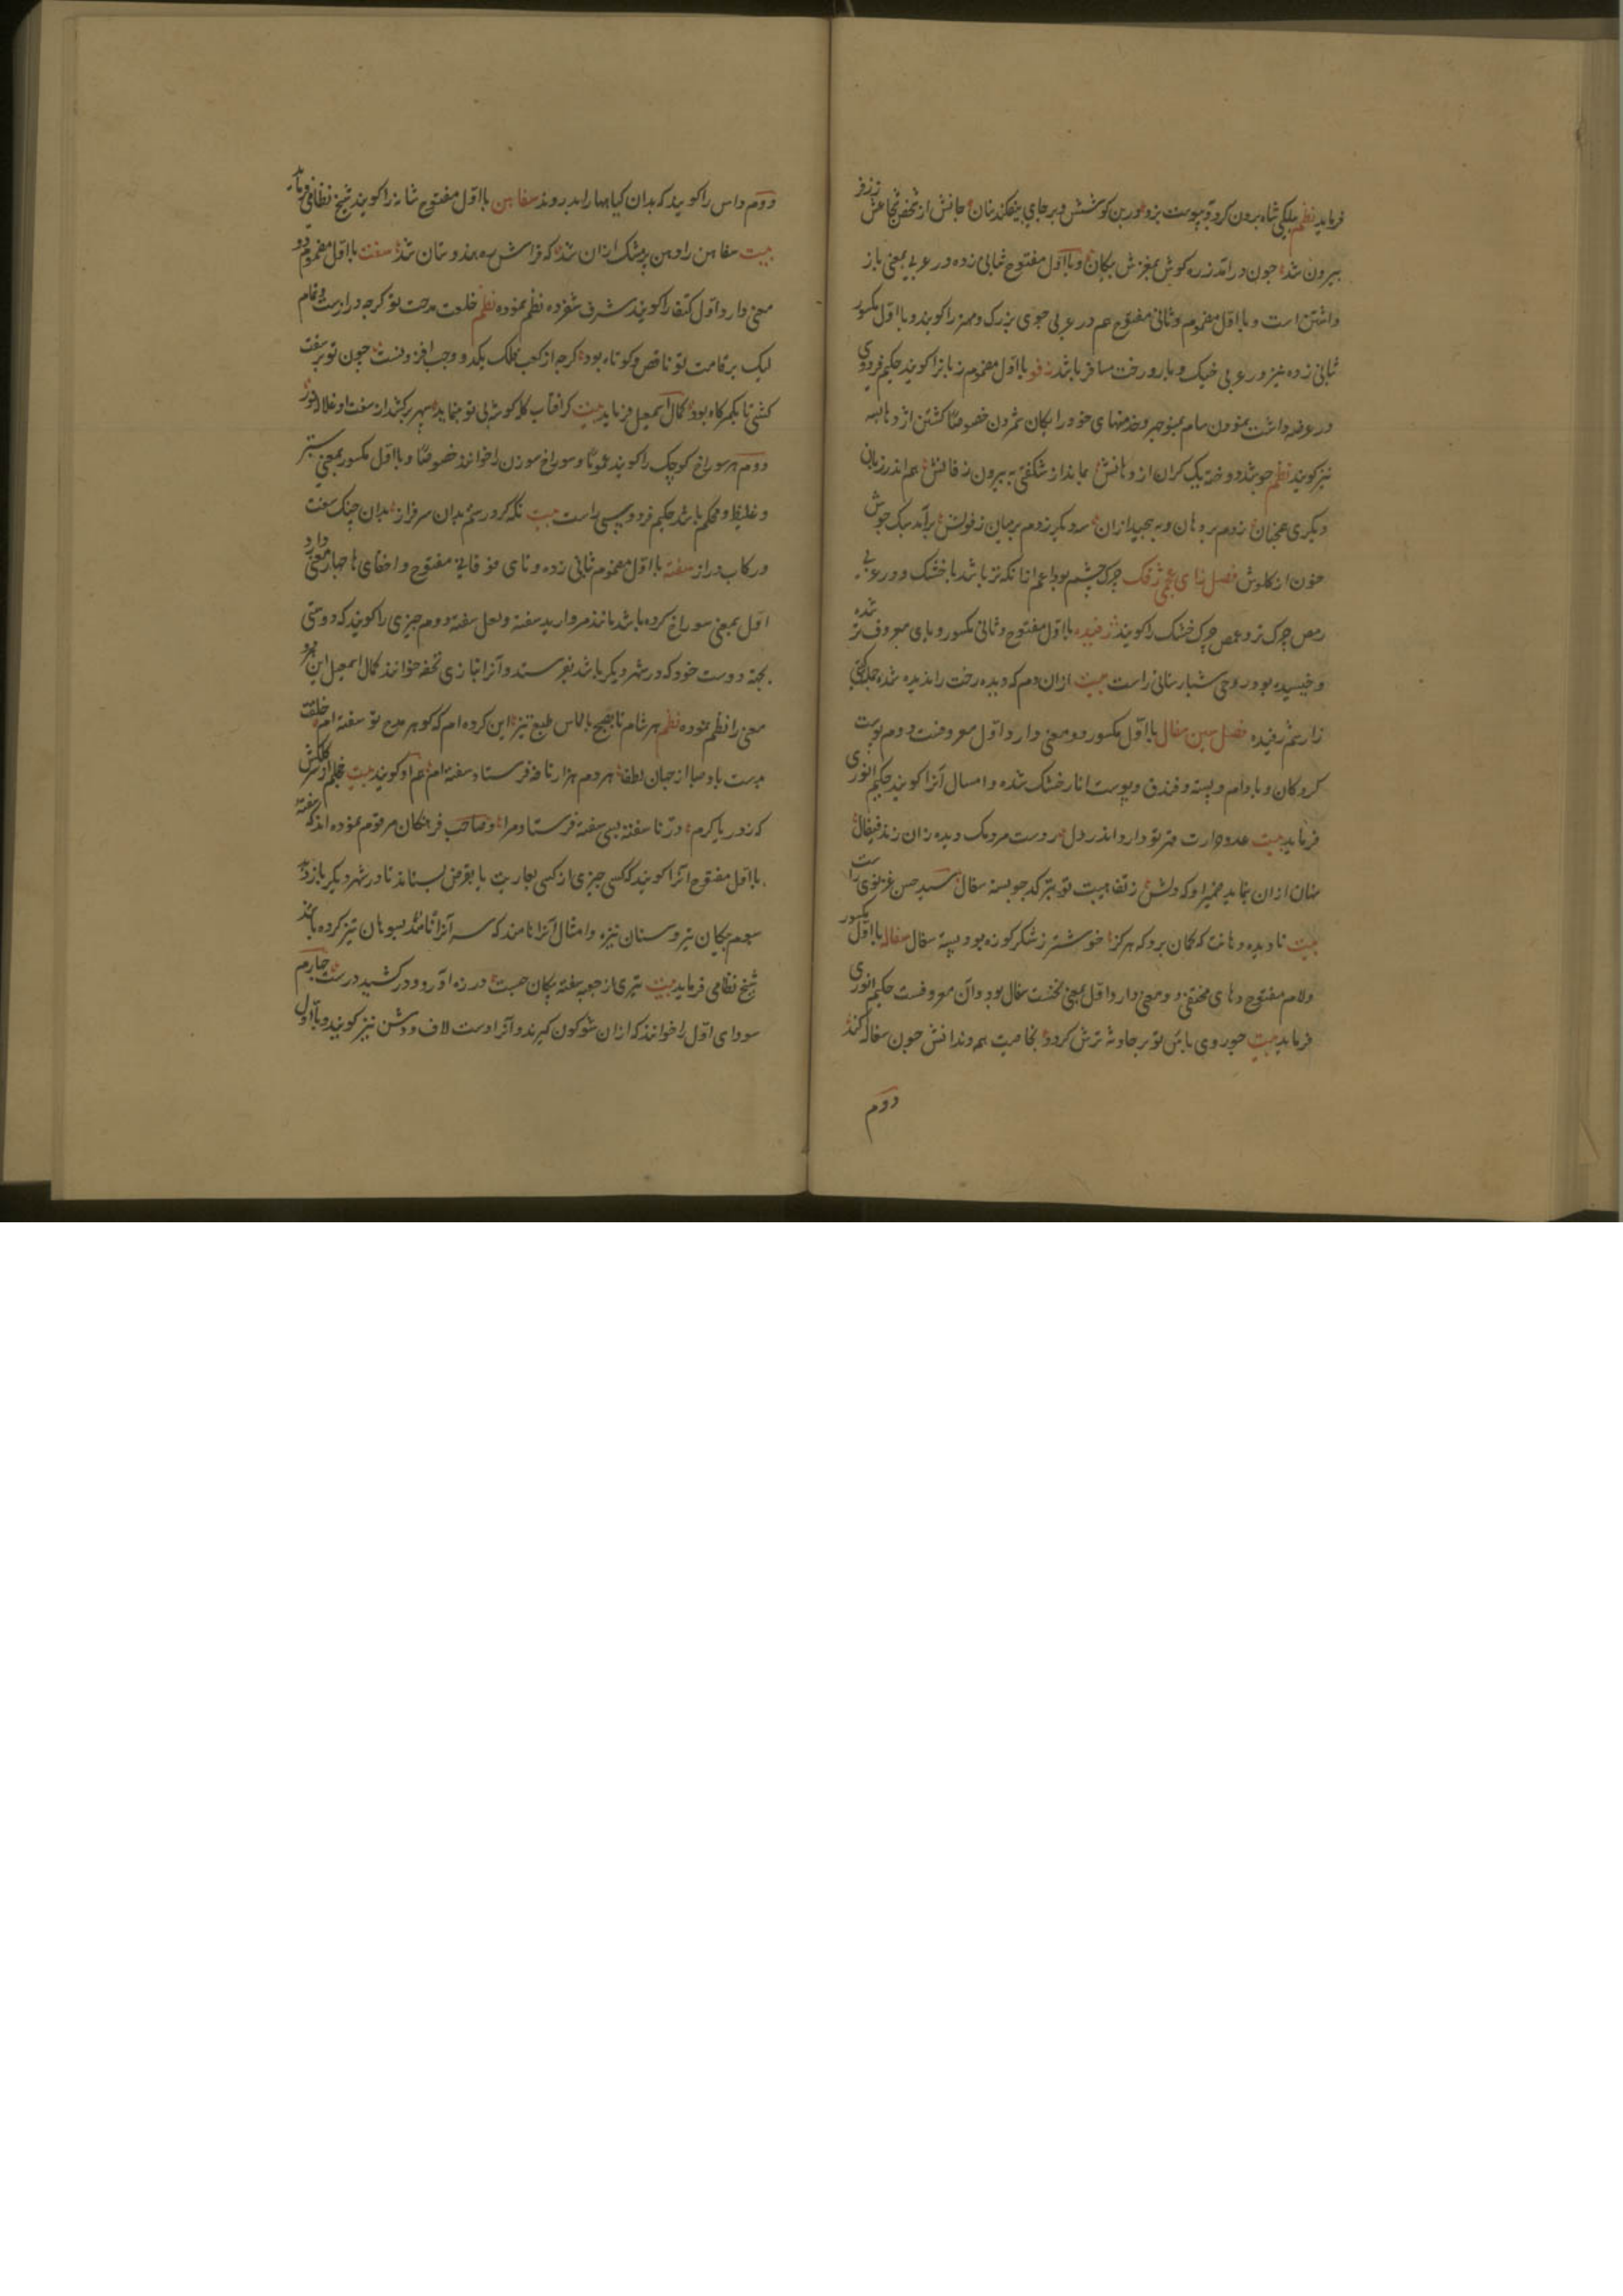 فرماید نظم بیکی شاه برون کرد ز پوست بزوبین کوشش وبرجای بیفکند بنان جانش از شخص شجاعش ز زفر
بیرون شد چون درآمد زره کوش بمغزش پیکان وبااول مفتوح ثبانی زده در عربی بمعنی باز
داشتن است و بااول مضموم وثانی مفتوح هم در عربی جوی بزرک ومهتر را کویند وبااول مکسور
ثبانی زده نیز در عربی خیک وبار و رخت مسافر باشد زفو بااول مضموم زبانرا کویند حکیم فردوسی
در عرضه داشت نمودن سام بمنوچهر وخدمتهای خود را یکان شمردن خصوصا کشتن اژدها
نیز کوید نظم چو شد دوخته یک کران از دهانش بماند از شکفتی به بیرون زفانش هم اندر زمان
دیکری همچنان زدم بر دهان وبه پیچید ازان سه دیکر زدم بر میان زفوش برآمد بیک جوش
خون از کلوش فصل زای عجمی ژفک چرک چشم بود اعم ازانکه تر باشد یا خشک و در عربی
رمص چرک تر وغمص چرک خشک را کویند ژفیده بااول مفتوح وثانی مکسور ویای معروف تر شده
وخیسیده بود روحی شبارستانی راست بیت ازان دم که دیده رخت را ندیده شده جمله کیتی
زاشکم ژفیده فصل سین سفال بااول مکسور دو معنی دارد اول معروفست دوم پوست
کردکان وبادام وپسته وفندق وپوست انار خشک شده وامسال آنرا کویند حکیم انوری
فرماید بیت عدو حرارت قهر تو دارد اندر دل دوست مردمک دیده زان زند قیفال
چنان ازان بنماید ضمیر او که دلش ز تف هیبت تو بترکد چو پسته سفال سید حسن غزنوی راست
بیت نادیده دهانت که کمان برد که هرکز خوشتر ز شکر کوزه بود پسته سفال سفاله بااول مکسور
ولام مفتوح وهای مختفی دو معنی دارد اول بمعنی نخست سفال بود وآن معروفست حکیم انوری
فرماید بیت چو روی باس تو بر حادثه ترش کردد بخاصیت همه دندانش چون سفاله کند
دوم
دوم داس را کویند که بدان کیاهها را بدروند سفاهن بااول مفتوح شانه را کویند شیخ نظامی فرماید
بیت سفاهن راوهن پر مشک ازان شد که فراش ره هندوستان شد سفت بااول مضموم دو
معنی دارد اول کتف را کویند شرف شفروه نظم نموده نظم خلعت مدحت تو کرچه دراز است وتمام
لیک برقامت تو ناقص وکوتاه بود کرچه از کعب فلک یکدو وجب افزونست چون تو بر سفت
کشی تا بکمرکاه بود کمال اسمعیل فرماید بیت کر آفتاب کله کوشه بی تو بنماید سپهر برکشد از سفت او غلاله نور
دوم هر سوراخ کوچک را کویند عموما وسوراخ سوزن را خوانند خصوصا وبااول مکسور بمعنی ستبر
وغلیظ ومحکم باشد حکیم فردوسی راست بیت نکه کرد رستم بدان سرفراز بدان چنک سفت
ورکاب دراز سفته بااول مضموم ثبانی زده وتای فوقانی مفتوح واخفای ها چهار معنی دارد
اول بمعنی سوراخ کرده باشد مانند مروارید سفته ولعل سفته دوم چیزی را کویند که دوستی
بجهة دوست خود که در شهر دیکر باشد بفرستد وآنرا بتازی تحفه خوانند کمال اسمعیل این هر دو
معنی را نظم نموده نظم هر شام تا بصبح بالماس طبع تیز این کرده ام که کوهر مدح تو سفته ام خلقت
بدست باد صبا از جهان لطف هر دم هزار نافه فرستاد سفته ام هم او کوید بیت خجلم از سر کلکش
که ز دریا کرم در ناسفته بسی سفته فرستاد مرا وصاحب فرهنکان مرقوم نموده اند که سفته
بااول مفتوح آنرا کویند که کسی چیزی از کسی بعاریت یا بقرض بستاند تا در شهر دیکر باز دهد
سوم پیکان تیر وسنان نیزه وامثال آنرا نامند که سر آنرا بسوهان تیز کرده باشند
شیخ نظامی فرماید بیت تیری از جعبه سفته پیکان جست در زه آورد ودر کشید درست چهارم
سودای اول را خوانند که ازان شوکون کیرند وآنرا دست لاف ودشن نیز کویند وبااول